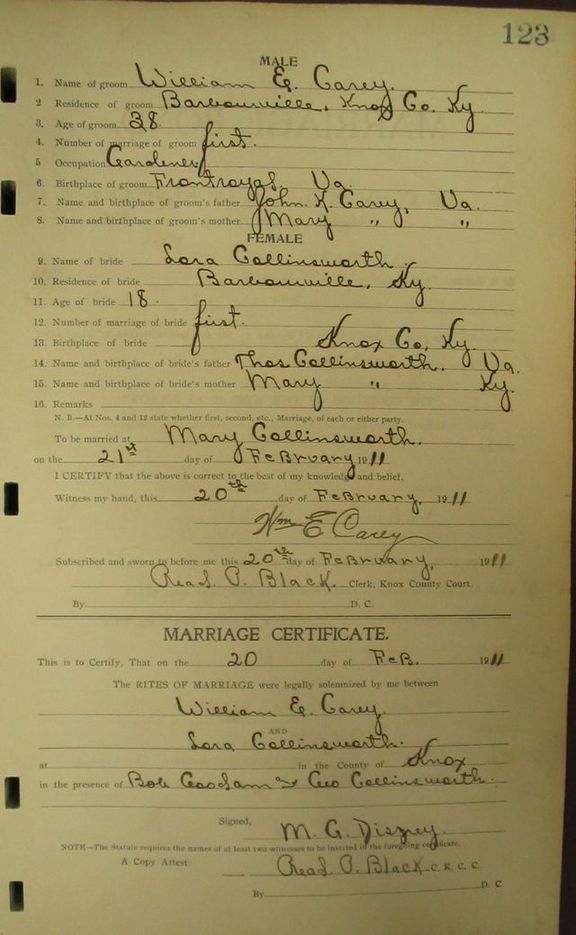 123
MALE
1. Name of groom William E. Carey.
2 Residence of groom Barbourville, Knox Co. Ky.
3. Age of groom 38.
4. Number of marriage of groom first.
5 Occupation Gardener
6. Birthplace of groom Frontroyal, Va.
7. Name and birthplace of groom's father John. K. Carey, Va.
8. Name and birthplace of groom's mother Mary " "
FEMALE
9. Name of bride Lora Collinsworth.
10. Residence of bride Barbourville, Ky.
11. Age of bride 18.
12. Number of marriage of bride first.
13. Birthplace of bride Knox Co. Ky.
14. Name and birthplace of bride's father Thos Collinsworth. Va.
15. Name and birthplace of bride's mother Mary " Ky.
16. Remarks
N. B.—At Nos. 4 and 12 state whether first, second, etc., Marriage, of each or either party.
To be married at Mary Collinsworth.
on the 21st day of February 1911
I CERTIFY that the above is correct to the best of my knowledge and belief.
Witness my hand, this 20th day of February, 1911
Wm E Carey
Subscribed and sworn to before me this 20th day of February, 1911
Read P. Black. Clerk, Knox County Court.
By D. C.
MARRIAGE CERTIFICATE.
This is to Certify, That on the 20 day of Feb. 1911
The RITES OF MARRIAGE were legally solemnized by me between
William E. Carey.
AND
Lora Collinsworth.
at in the County of Knox
in the presence of Bob & Geo Collinsworth.
Signed, M. G. Disney.
NOTE—The Statute requires the names of at least two witnesses to be inserted in the foregoing certificate.
A Copy Attest: Read P. Black C. K. C. C.
By D. C.